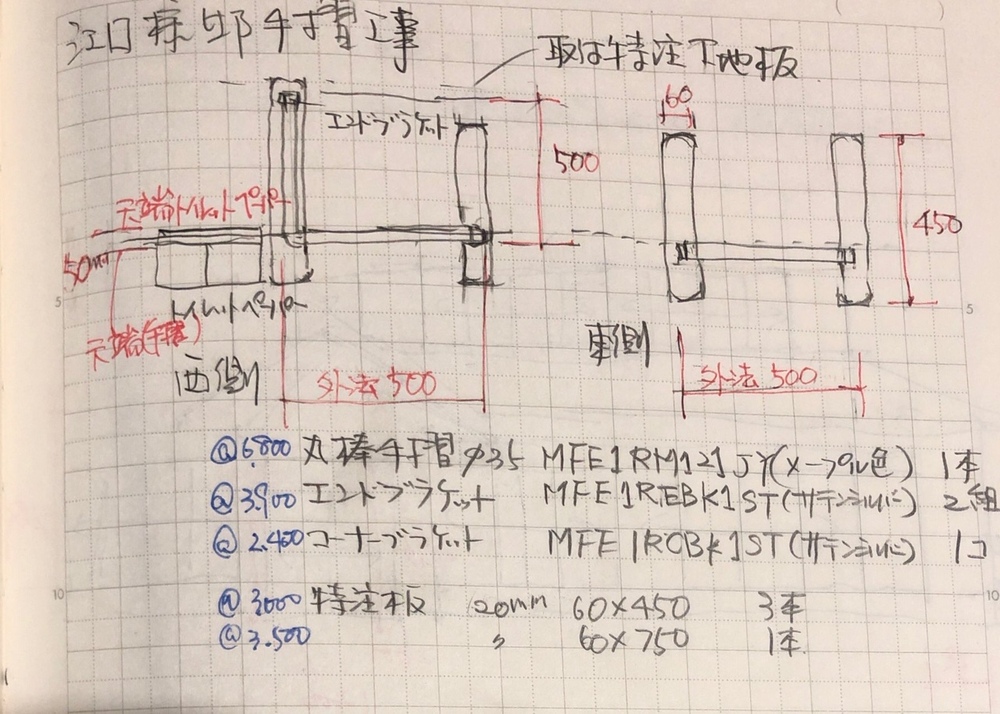 江口様邸手摺工事
取付特注下地板
60
エンドブラケット
500
450
天端トイレットペーパー
50mm
トイレットペーパー
天端(手摺)
西側
東側
外法500
外法500
@6.800 丸棒手摺 φ35 MFE1RM121JY(メープル色) 1本
@3.900 エンドブラケット MFE1REBK1ST(サテンシルバー) 2組
@2.400 コーナーブラケット MFE1RCBK1ST(サテンシルバー) 1コ
@3000 特注板 20mm 60×450 3本
@3.500 〃 60×750 1本
5
5
10
10